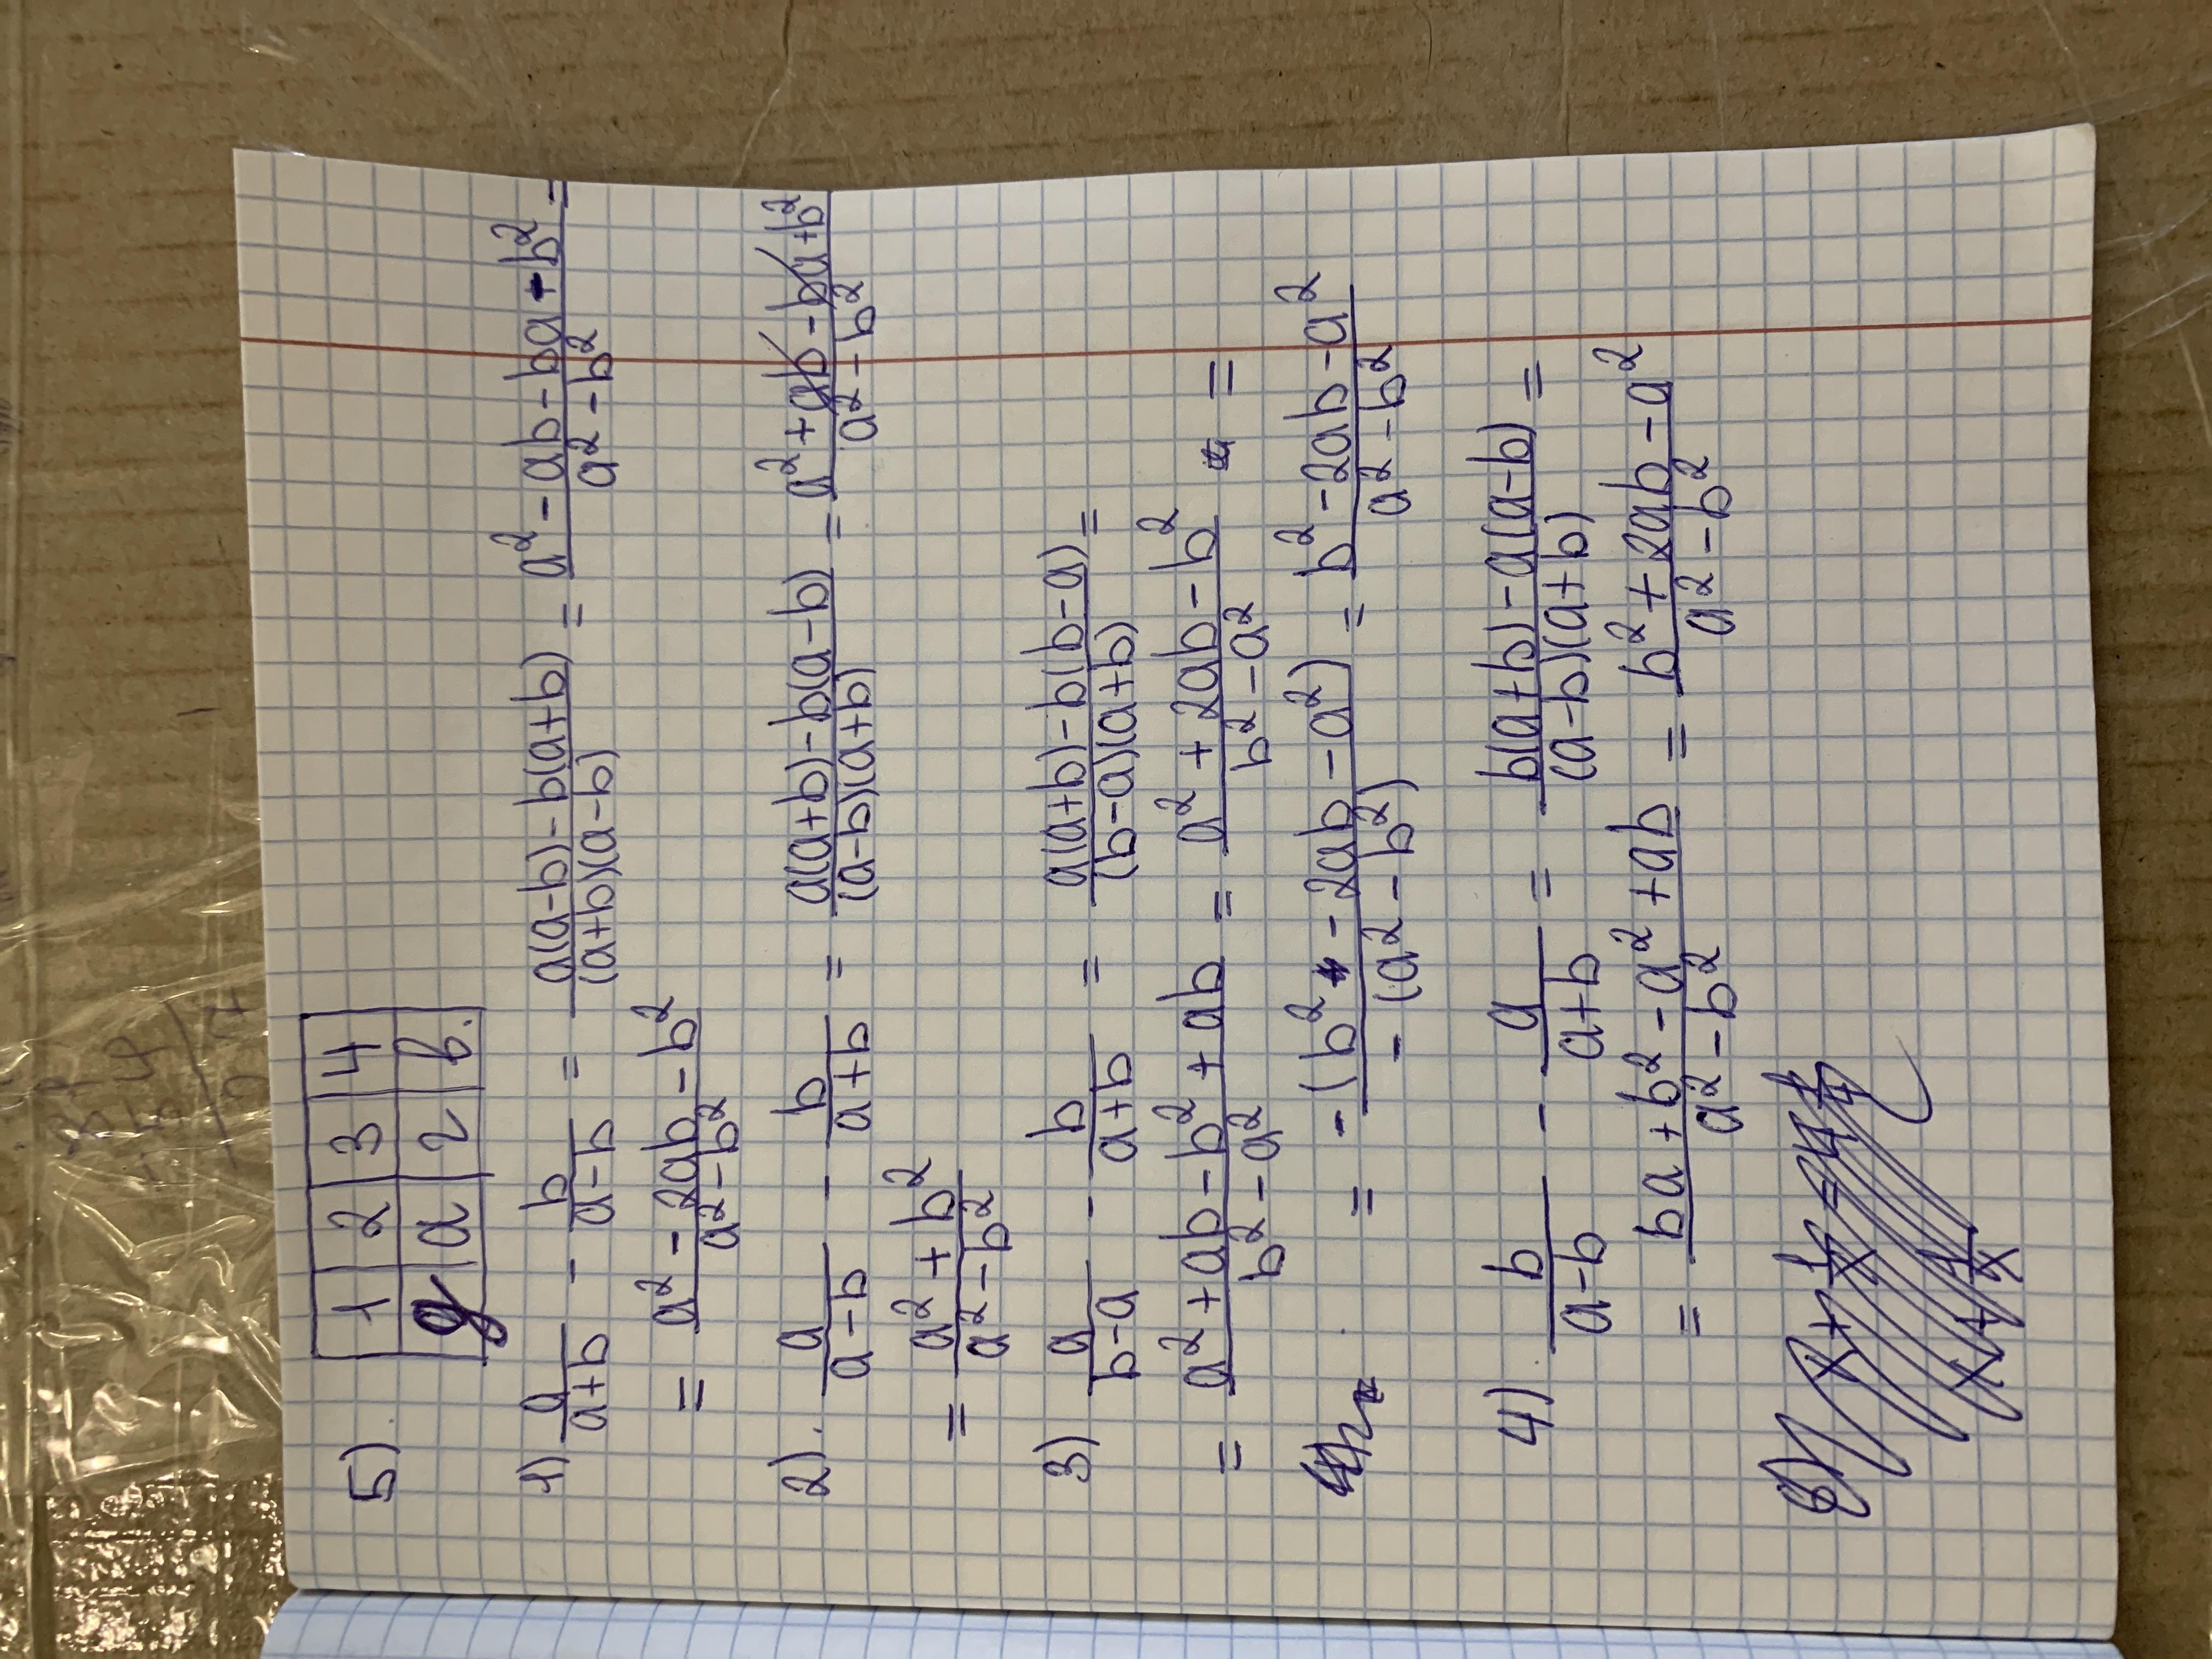 5).
1 2 3 4
g a г в.
1) a/(a+b) - b/(a-b) = (a(a-b)-b(a+b))/((a+b)(a-b)) = (a²-ab-ba-b²)/(a²-b²) =
= (a²-2ab-b²)/(a²-b²)
2). a/(a-b) - b/(a+b) = (a(a+b)-b(a-b))/((a-b)(a+b)) = (a²+ab-ba+b²)/(a²-b²)
= (a²+b²)/(a²-b²)
3) a/(b-a) - b/(a+b) = (a(a+b)-b(b-a))/((b-a)(a+b)) =
= (a²+ab-b²+ab)/(b²-a²) = (a²+2ab-b²)/(b²-a²) =
= -(b²-2ab-a²)/-(a²-b²) = (b²-2ab-a²)/(a²-b²)
4). b/(a-b) - a/(a+b) = (b(a+b)-a(a-b))/((a-b)(a+b)) =
= (ba+b²-a²+ab)/(a²-b²) = (b²+2ab-a²)/(a²-b²)